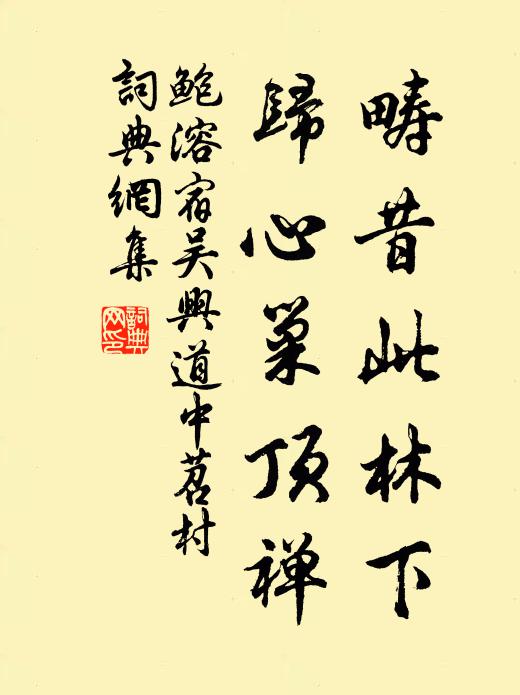 畴昔此林下
歸心巢顶禅
鲍溶宿吴興道中苕村
詞典網集
詞典
网印